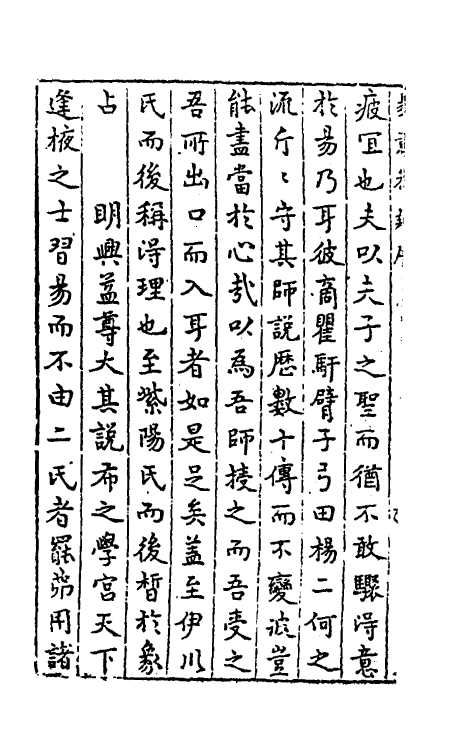 疲宜也夫以夫子之聖而猶不敢驟得意
於易乃耳彼商瞿馯臂子弓田楊二何之
流斤々守其師說歷數十傳而不變彼豈
能盡當於心哉以為吾師授之而吾受之
吾所出口而入耳者如是足矣蓋至伊川
氏而後稱得理也至紫陽氏而後晳於象
占　　明興益尊大其說布之學宮天下
逢掖之士習易而不由二氏者罷弗用諸